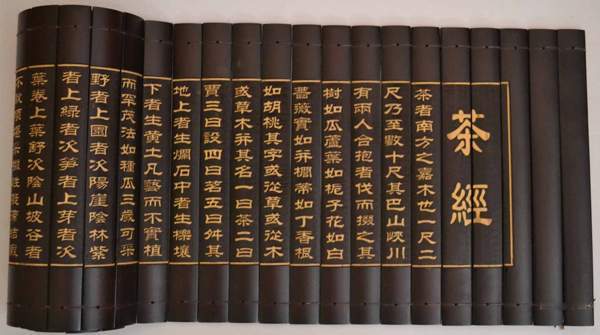 茶經
茶者南方之嘉木也一尺二
尺乃至數十尺其巴山峽川
有兩人合抱者伐而掇之其
樹如瓜蘆葉如梔子花如白
薔薇實如并櫚蒂如丁香根
如胡桃其字或從草或從木
或草木并其名一曰茶二曰
賈三曰設四曰茗五曰舛其
地上者生爛石中者生櫟壤
下者生黄土凡藝而不實植
而罕茂法如種瓜三歲可采
野者上園者次陽崖陰林紫
者上綠者次筍者上芽者次
葉卷上葉舒次陰山坡谷者
不